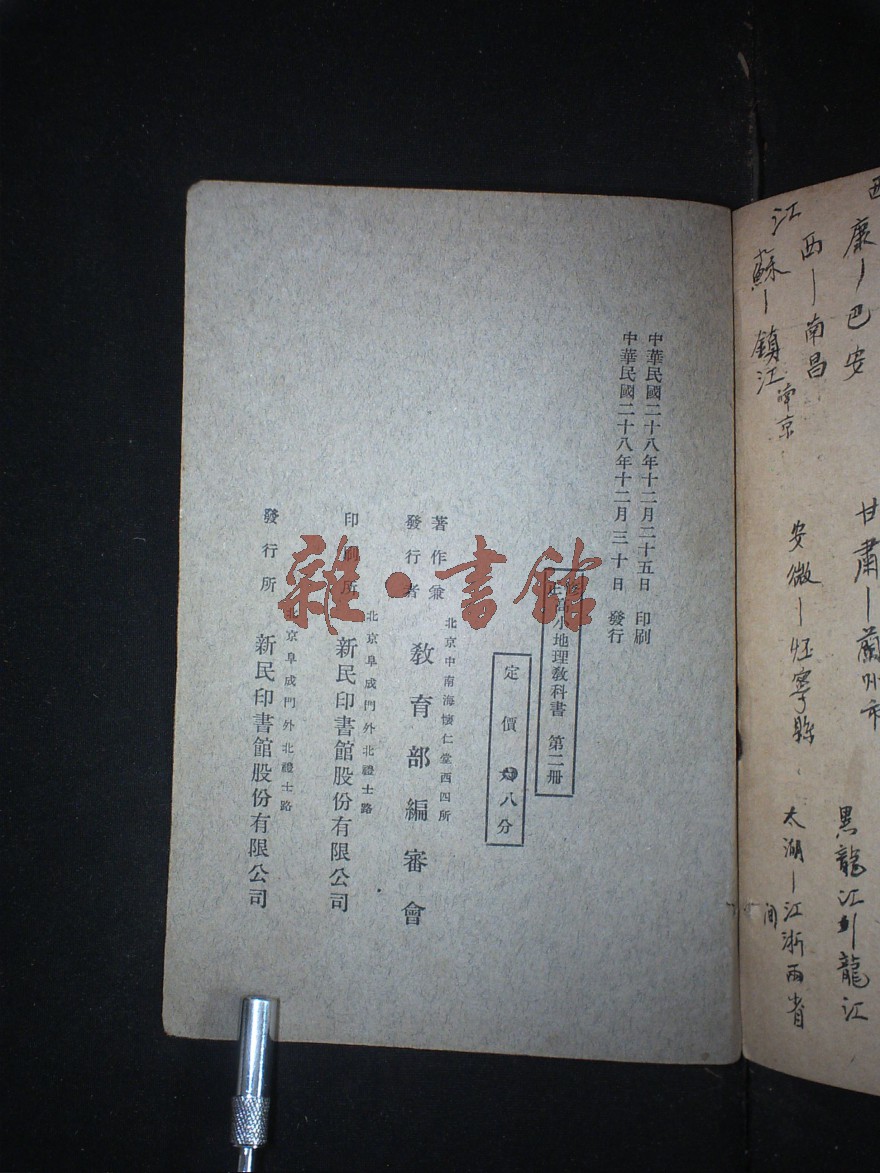 康—巴安
西—南昌
江蘇—鎮江 南京
甘肅—蘭州市
安微—怀寧縣
黑龍江 龍江
太湖—江浙兩省
间
中華民國二十八年十二月二十五日 印刷
中華民國二十八年十二月三十日 發行
修正高小地理教科書 第二冊
定價 八分
著作兼發行者
北京中南海懷仁堂西四所
教育部編審會
印刷所
北京阜成門外北禮士路
新民印書館股份有限公司
發行所
北京阜成門外北禮士路
新民印書館股份有限公司
雜·書館